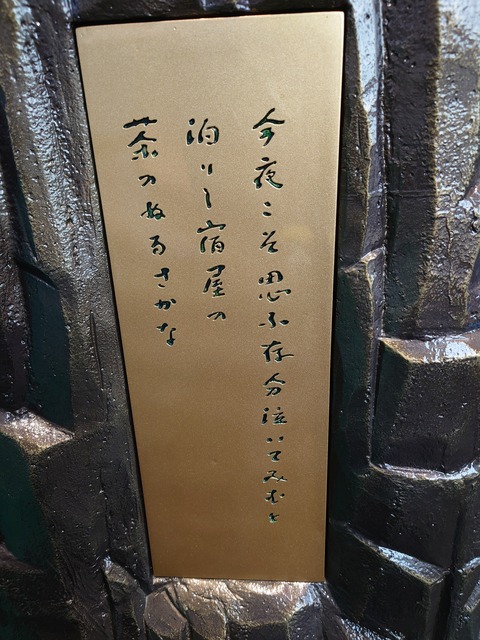 今夜こそ思ふ存分泣いてみむと
泊りし宿屋の
茶のぬるさかな